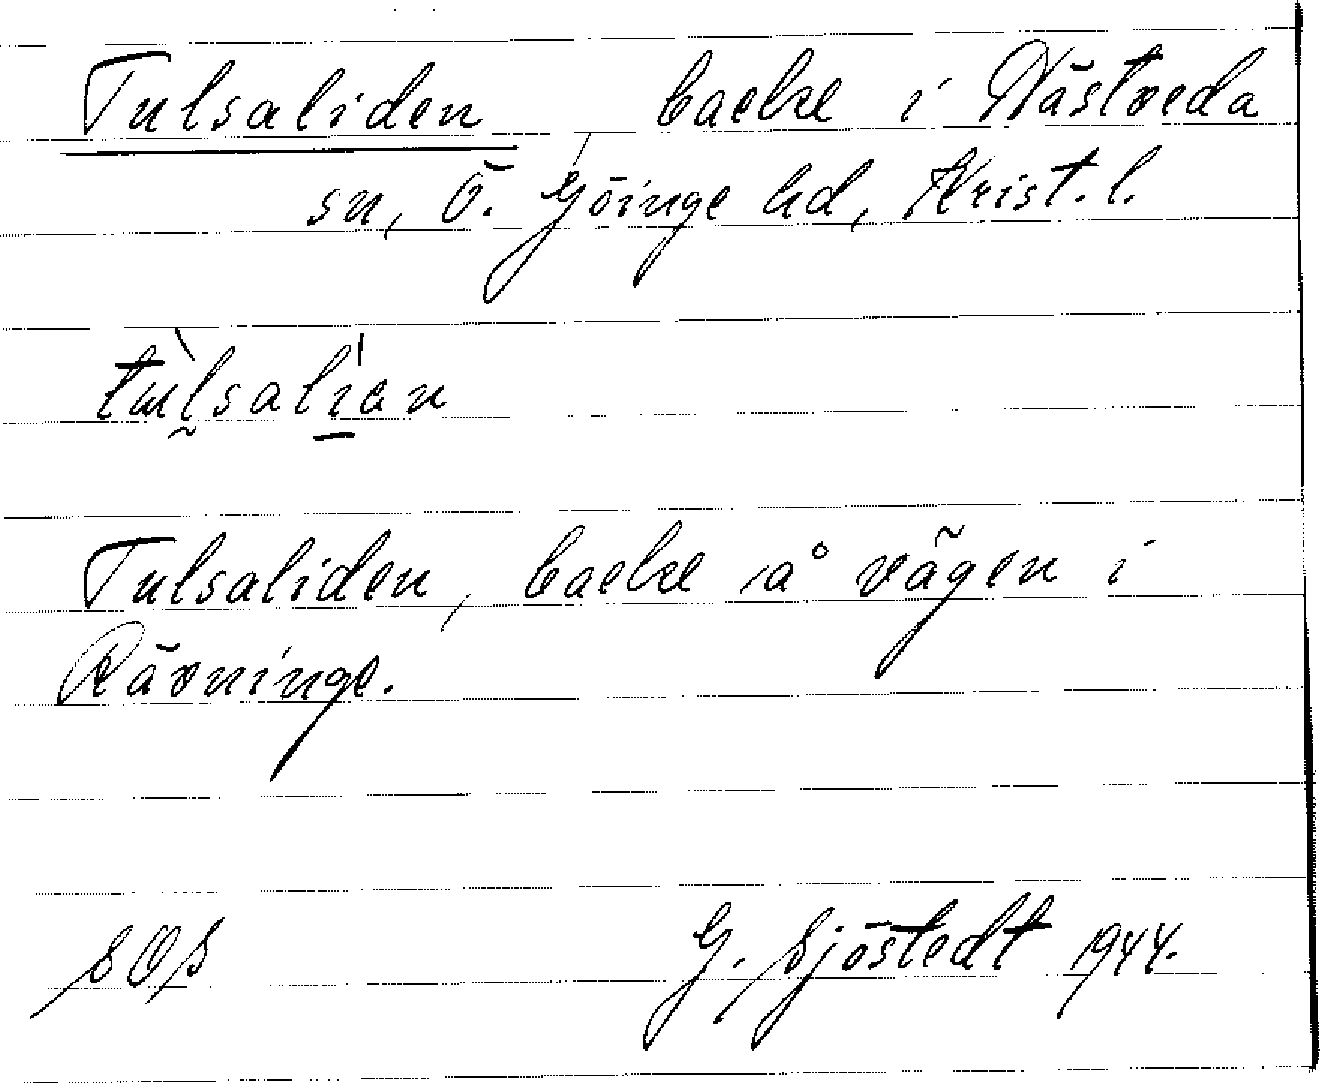 Tulsaliden, backe i Nästveda
sn, Ö. Göinge hd, Krist. l.
Tulsaliden, backe å vägen i
Rävninge.
SOS
G. Sjöstedt 1944.